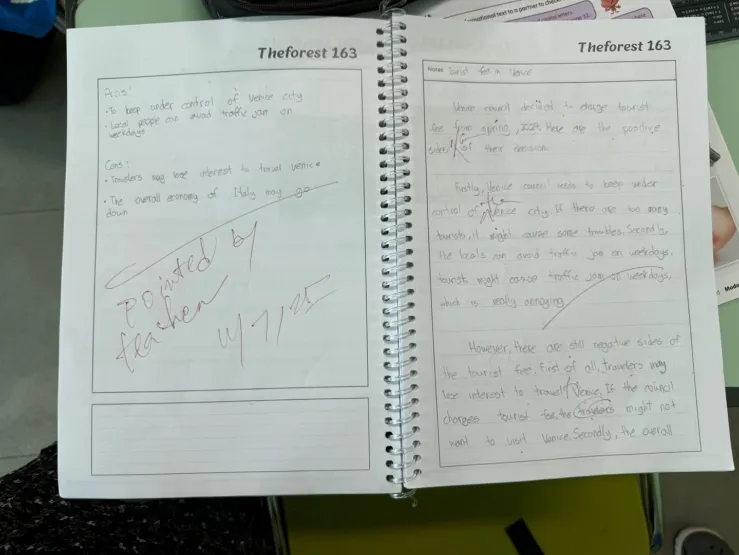 Theforest 163
Pros:
• To keep under control of Venice city
• Local people can avoid traffic jam on
weekdays
Cons:
• Travelers may lose interest to travel Venice
• The overall economy of Italy may go
down
pointed by
teacher
Theforest 163
Notes Tourist fee in Venice
Venice council decided to charge tourist
fee from spring, 2024. These are the positive
sides of their decision.
Firstly, Venice council needs to keep under
control of Venice city. If there are too many
tourists, it might cause some troubles. Secondly,
the locals can avoid traffic jam on weekdays.
Tourist might cause traffic jam on weekdays,
which is really annoying.
However, there are still negative sides of
the tourist fee. First of all, travelers may
lose interest to travel Venice. If the council
charges tourist for the travelers might not
want to visit Venice. Secondly, the overall